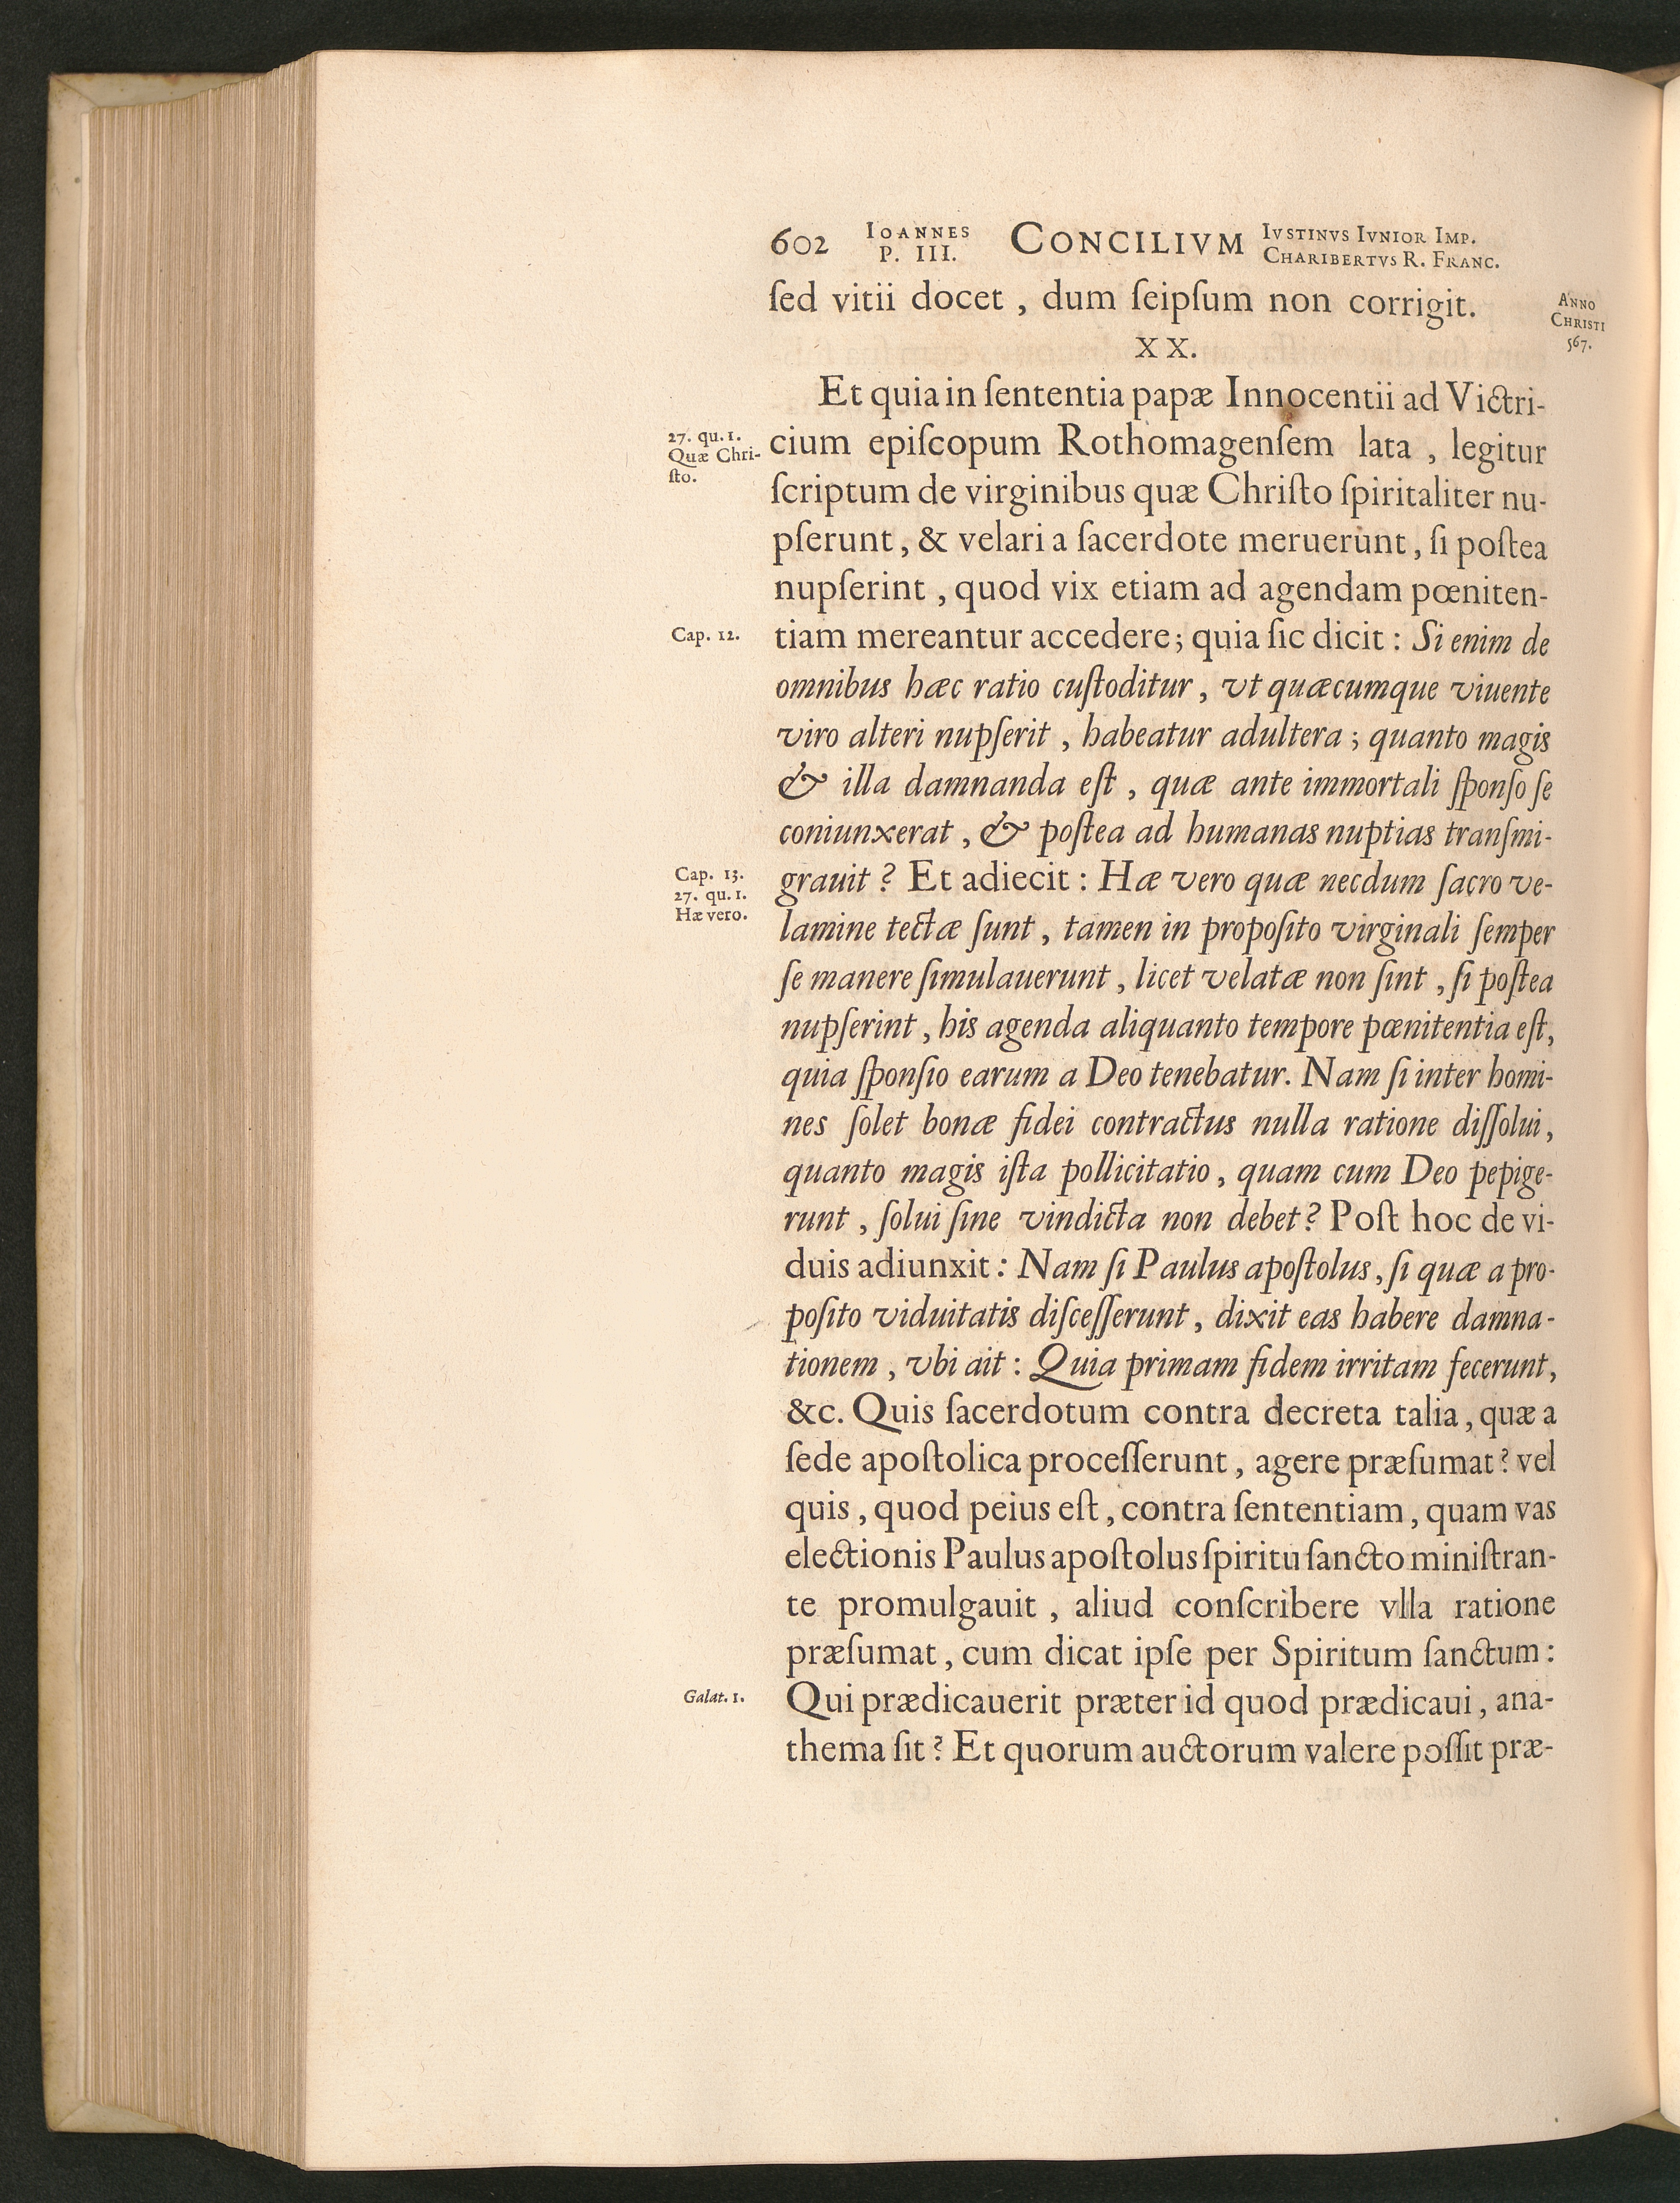 602 IOANNES P. III. CONCILIVM IVSTINVS IVNIOR IMP. CHARIBERTVS R. FRANC.
ſed vitii docet , dum ſeipſum non corrigit.
ANNO
CHRISTI
567.
XX.
Et quia in ſententia papæ Innocentii ad Victri-
27. qu. 1.
Quæ Chri-
ſto.
cium epiſcopum Rothomagenſem lata , legitur
ſcriptum de virginibus quæ Chriſto ſpiritaliter nu-
pſerunt , & velari a ſacerdote meruerunt , ſi poſtea
nupſerint , quod vix etiam ad agendam pœniten-
Cap. 12.
tiam mereantur accedere ; quia ſic dicit : Si enim de
omnibus hæc ratio cuſtoditur , vt quæcumque viuente
viro alteri nupſerit , habeatur adultera ; quanto magis
& illa damnanda eſt , quæ ante immortali ſponſo ſe
coniunxerat , & poſtea ad humanas nuptias tranſmi-
Cap. 13.
27. qu. 1.
Hæ vero.
grauit ? Et adiecit : Hæ vero quæ necdum ſacro ve-
lamine tectæ ſunt , tamen in propoſito virginali ſemper
ſe manere ſimulauerunt , licet velatæ non ſint , ſi poſtea
nupſerint , his agenda aliquanto tempore pœnitentia eſt,
quia ſponſio earum a Deo tenebatur. Nam ſi inter homi-
nes ſolet bonæ fidei contractus nulla ratione diſſolui ,
quanto magis iſta pollicitatio , quam cum Deo pepige-
runt , ſolui ſine vindicta non debet ? Poſt hoc de vi-
duis adiunxit : Nam ſi Paulus apoſtolus , ſi quæ a pro-
poſito viduitatis diſceſſerunt , dixit eas habere damna-
tionem , vbi ait : Quia primam fidem irritam fecerunt,
&c. Quis ſacerdotum contra decreta talia , quæ a
ſede apoſtolica proceſſerunt , agere præſumat ? vel
quis , quod peius eſt , contra ſententiam , quam vas
electionis Paulus apoſtolus ſpiritu ſancto miniſtran-
te promulgauit , aliud conſcribere vlla ratione
præſumat , cum dicat ipſe per Spiritum ſanctum :
Galat. 1.
Qui prædicauerit præter id quod prædicaui , ana-
thema ſit ? Et quorum auctorum valere poſſit præ-